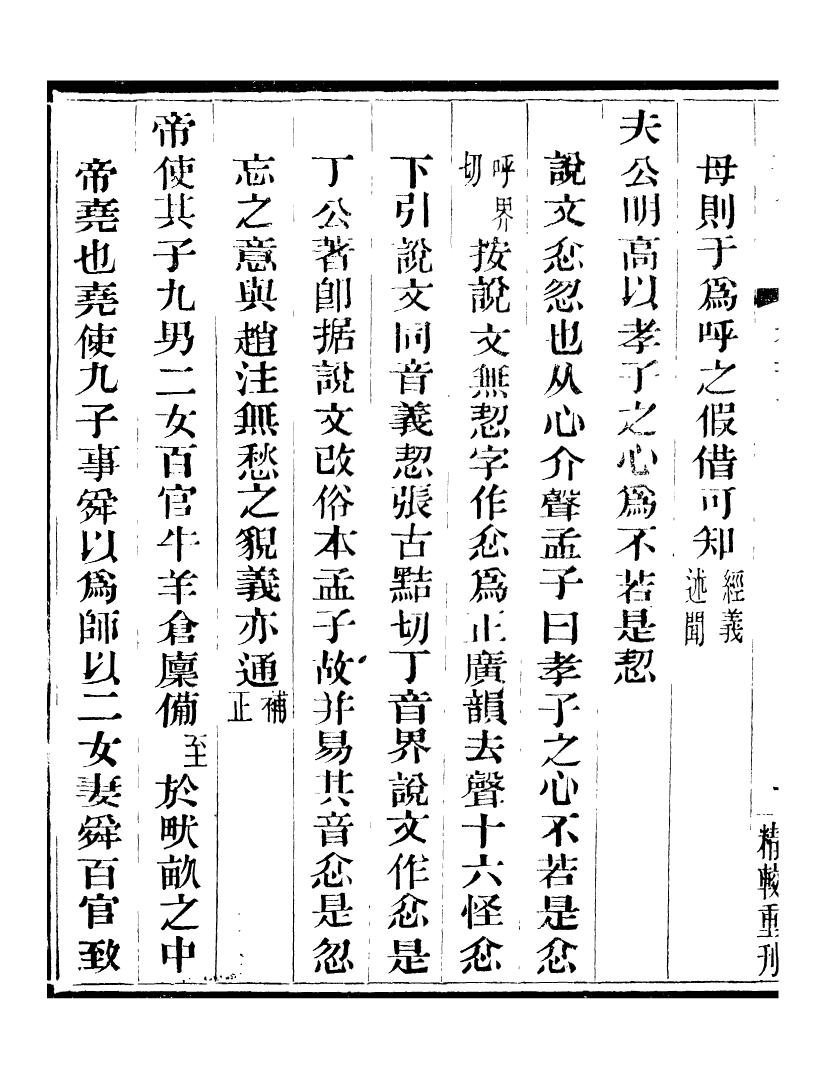 精較重刊
母則于爲呼之假借可知經義述聞
夫公明高以孝子之心爲不若是恝
說文忿忽也从心介聲孟子曰孝子之心不若是忿
呼界切按說文無恝字作忿爲正廣韻去聲十六怪忿
下引說文同音義恝張古黠切丁音界說文作忿是
丁公著卽据說文改俗本孟子故幷易其音忿是忽
忘之意與趙注無愁之貌義亦通補正
帝使其子九男二女百官牛羊倉廩備至於畎畝之中
帝堯也堯使九子事舜以爲師以二女妻舜百官致